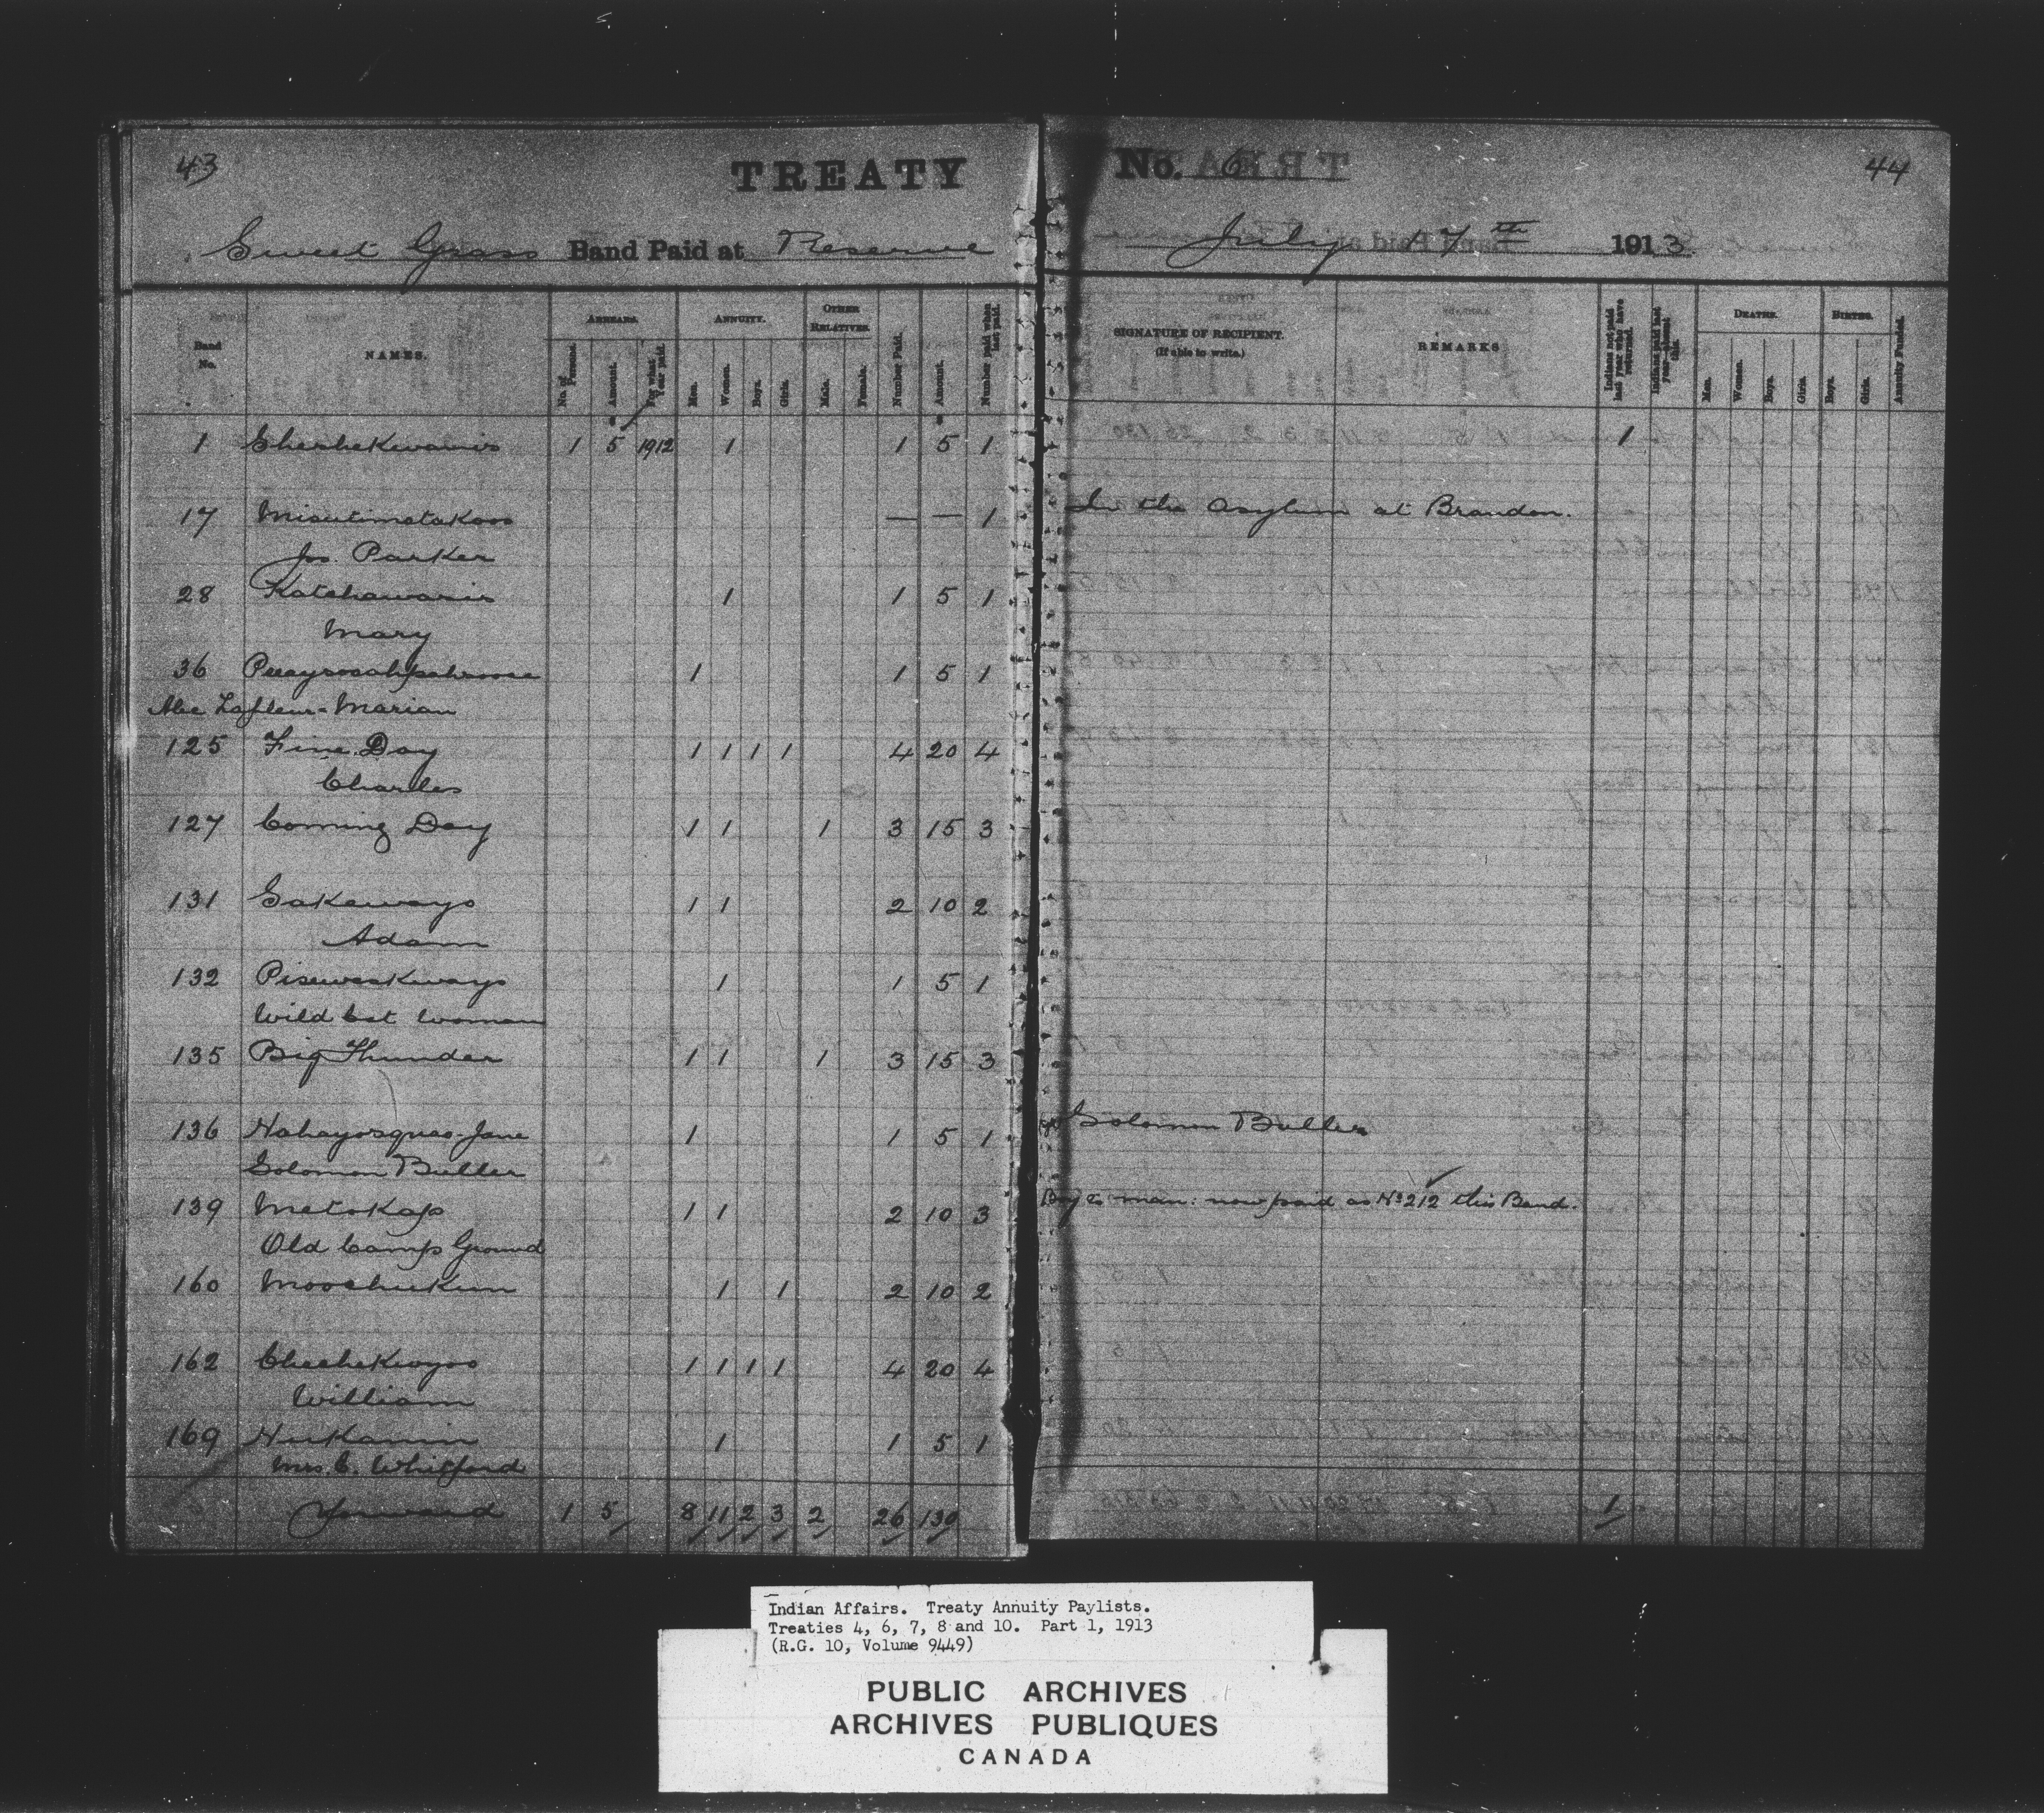 43
TREATY
No. 6
44
Sweet Grass Band Paid at Reserve
July 17th 1913
Band No.
NAMES.
ARREARS.
No. of Funds.
Amount.
For what Year paid.
ANNUITY.
Men.
Women.
Boys.
Girls.
OTHER RELATIVES.
Male.
Female.
Number Paid.
Amount.
Number paid when last paid.
SIGNATURE OF RECIPIENT.
(If able to write.)
REMARKS
Indians not paid last year who have returned.
Indians paid last year absent this.
DEATHS.
Men.
Women.
Boys.
Girls.
BIRTHS.
Boys.
Girls.
Annuity Funded.
1 Cheshekwanis 1 5 1912 1 1 5 1 1
17 — — 1 In the Asylum at Brandon.
Jos. Parker
28 Katchawasis 1 1 5 1
Mary
36 1 1 5 1
Alec Lafleur - Marian
125 Fine Day 1 1 1 1 4 20 4
Charles
127 Coming Day 1 1 1 3 15 3
131 Sakaways 1 1 2 10 2
Adam
132 Pisewaskways 1 1 5 1
Wild Cat Woman
135 Big Thunder 1 1 1 3 15 3
136 Nahayosquao Jane 1 1 5 1 Solomon Buller
Solomon Buller
139 Metokap 1 1 2 10 3 Boy to man: now paid as No 212 this Band.
Old Camp Ground
160 Mooschukun 1 1 2 10 2
162 Cheehekwyoo 1 1 1 1 4 20 4
William
169 Neekamin 1 1 5 1
Mrs. C. Whitford
Forward 1 5 8 11 2 3 2 26 130 1
Indian Affairs. Treaty Annuity Paylists.
Treaties 4, 6, 7, 8 and 10. Part 1, 1913
(R.G. 10, Volume 9449)
PUBLIC ARCHIVES
ARCHIVES PUBLIQUES
CANADA